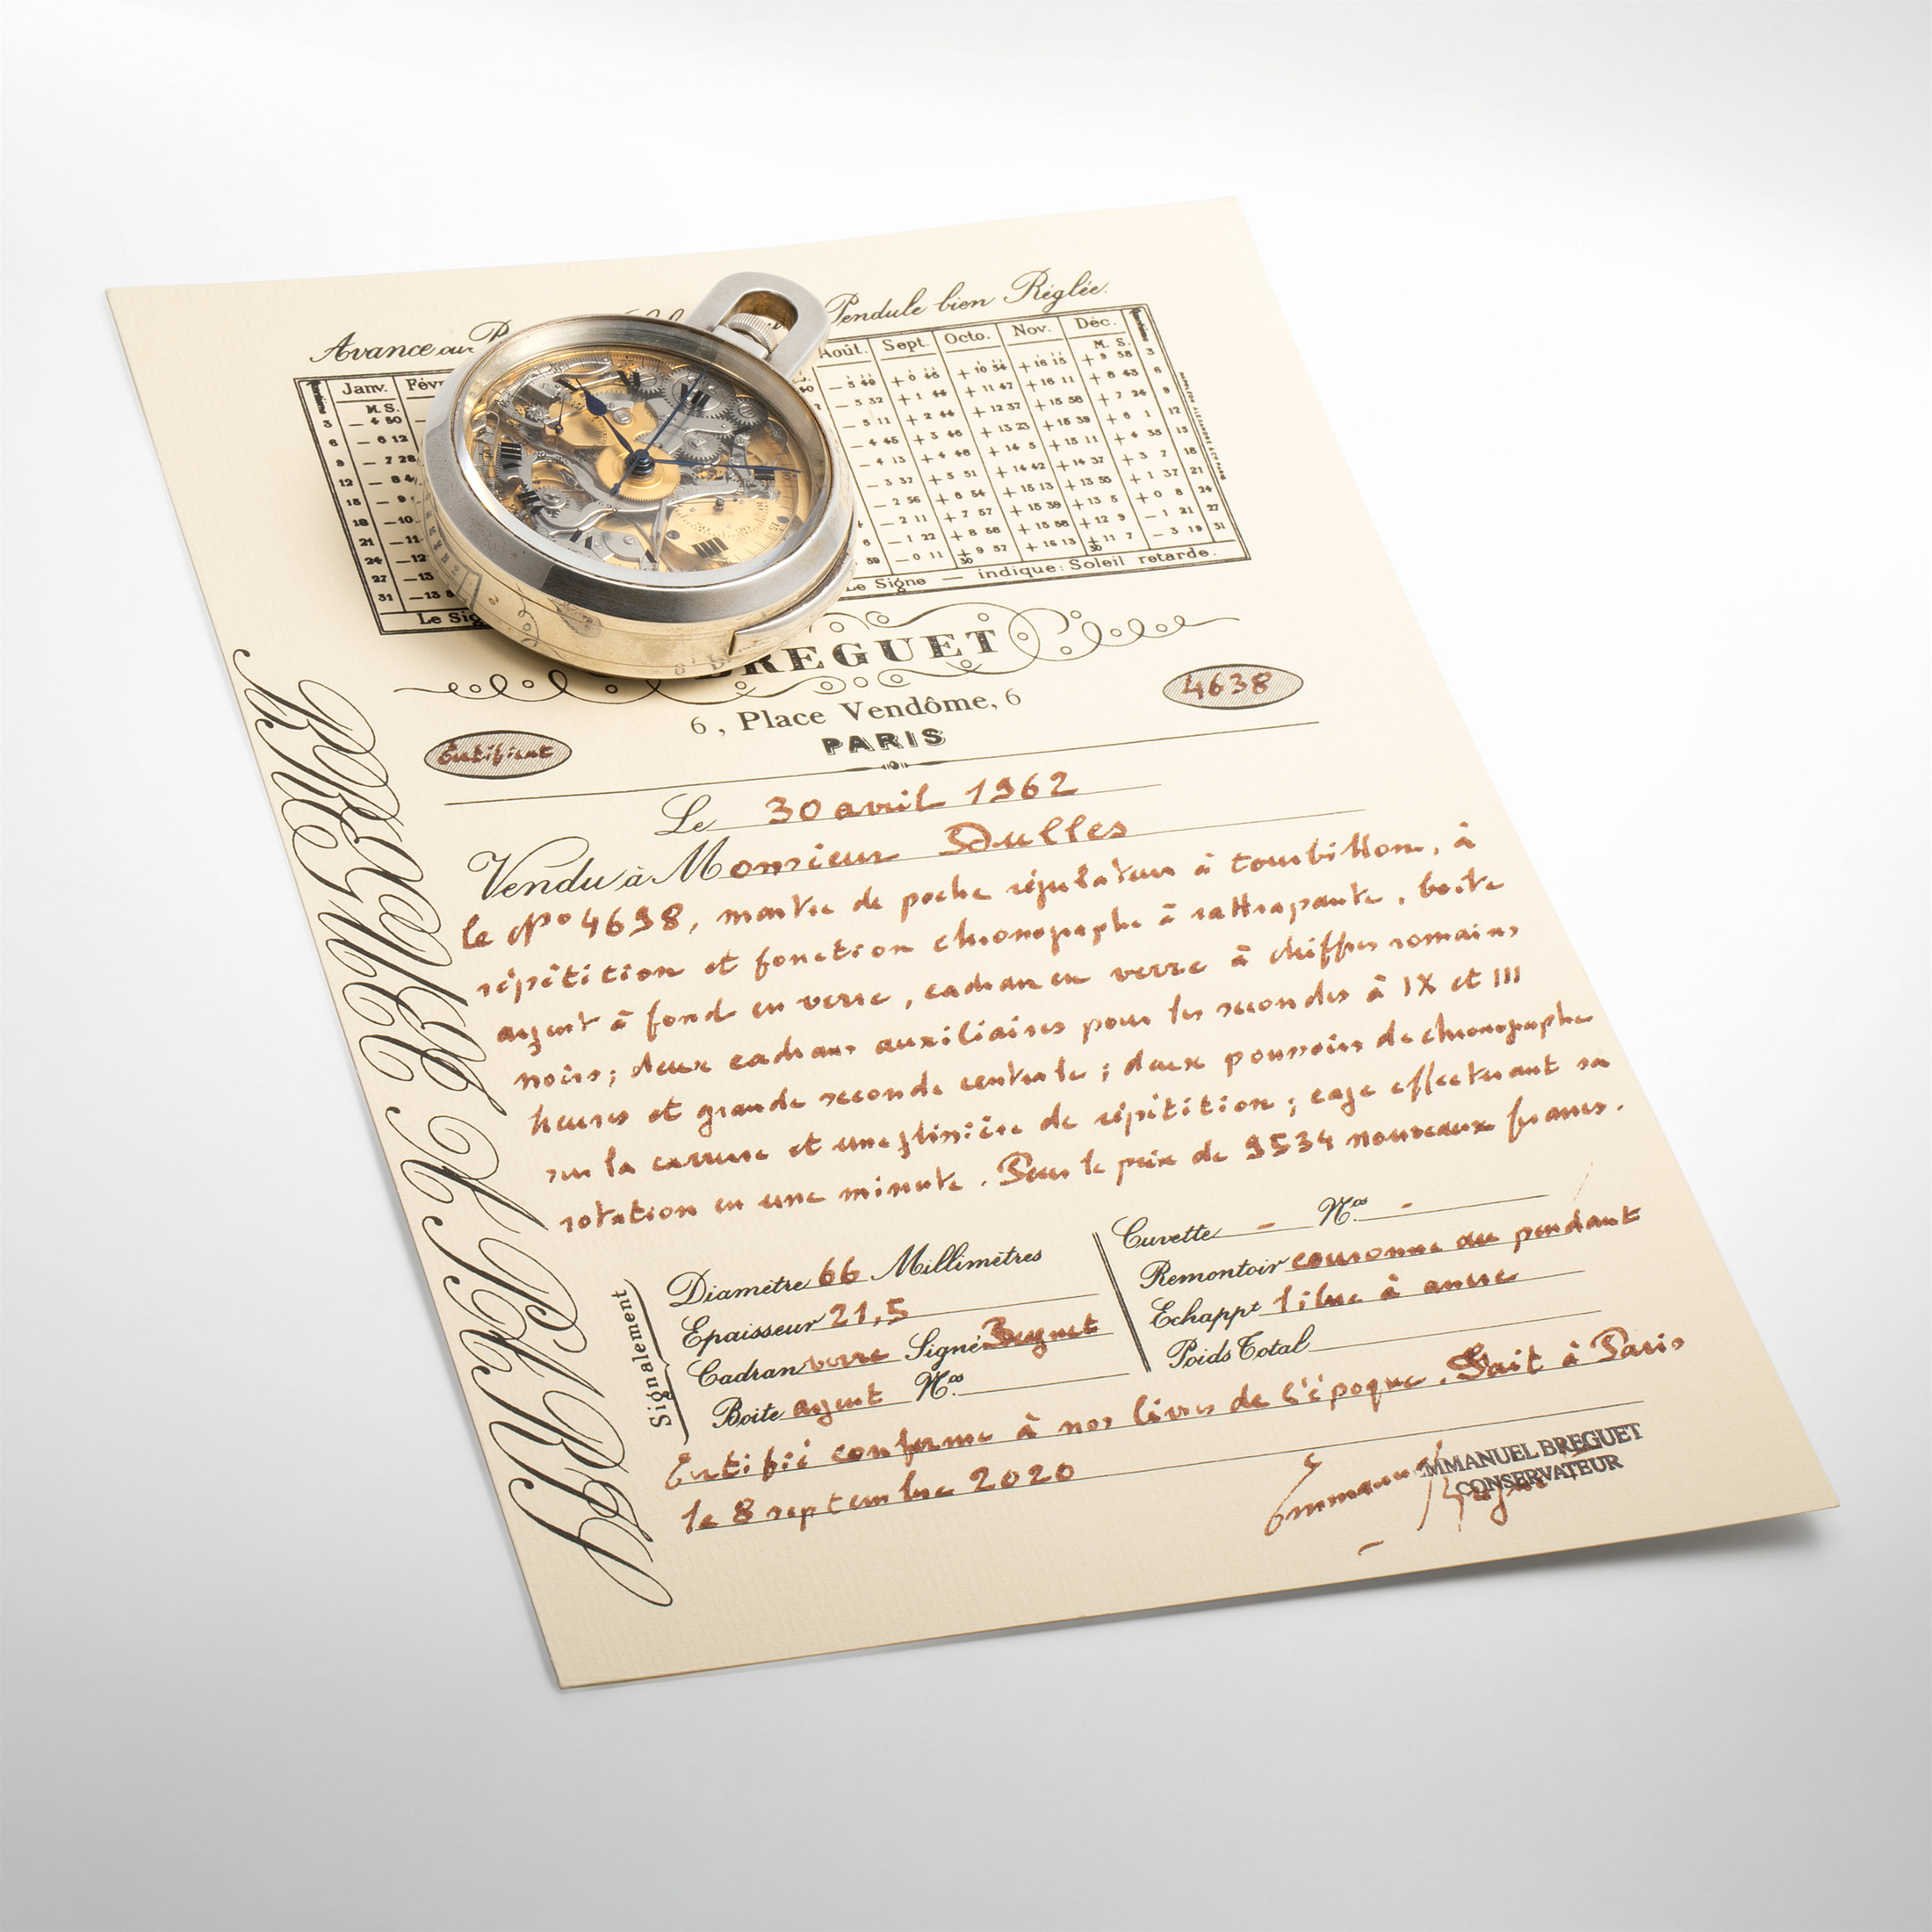 Avance ou Pendule bien Réglée.
Janv. Août. Sept. Octo. Nov. Déc.
M. S. M. S.
3 — 4 50 — 5 49 + 0 45 + 10 34 + 16 15 + 9 58 3
6 — 6 12 — 5 32 + 1 44 + 11 47 + 16 11 + 8 43 6
9 — 7 28 — 5 11 + 2 44 + 12 37 + 15 58 + 7 24 9
12 — 4 45 + 3 46 + 13 23 + 15 39 + 6 1 12
15 — 9 — 4 13 + 4 48 + 14 5 + 15 11 + 4 35 15
18 — 10 — 3 37 + 5 51 + 14 42 + 14 37 + 3 7 18
21 — 11 — 2 56 + 6 54 + 15 13 + 13 55 + 1 37 21
24 — 12 — 2 11 + 7 57 + 15 39 + 13 5 + 0 8 24
27 — 13 — 1 22 + 8 58 + 15 58 + 12 9 — 1 21 27
31 — 13 — 0 11 + 9 57 + 16 13 + 11 7 — 3 19 31
Le Signe — indique: Soleil retarde.
BREGUET
6, Place Vendôme, 6
PARIS
Certificat
4638
Le 30 avril 1962
Vendu à Monsieur Dulles
le No 4638, montre de poche régulateur à tourbillon, à
répétition et fonction chronographe à rattrapante, boite
argent à fond en verre, cadran en verre à chiffres romains
noirs; deux cadrans auxiliaires pour les secondes à IX et III
heures et grande seconde centrale; deux poussoirs de chronographe
sur la carrure et une glissière de répétition; cage effectuant sa
rotation en une minute. Pour le prix de 9534 nouveaux francs.
Signalement
Diamètre 66 Millimètres
Epaisseur 21,5
Cadran verre Signé Breguet
Boite argent Nos.
Cuvette - Nos. -
Remontoir couronne au pendant
Echappt libre à ancre
Poids Total
Certifié conforme à nos livres de l'époque. Fait à Paris
le 8 septembre 2020
Emmanuel Breguet
EMMANUEL BREGUET
CONSERVATEUR